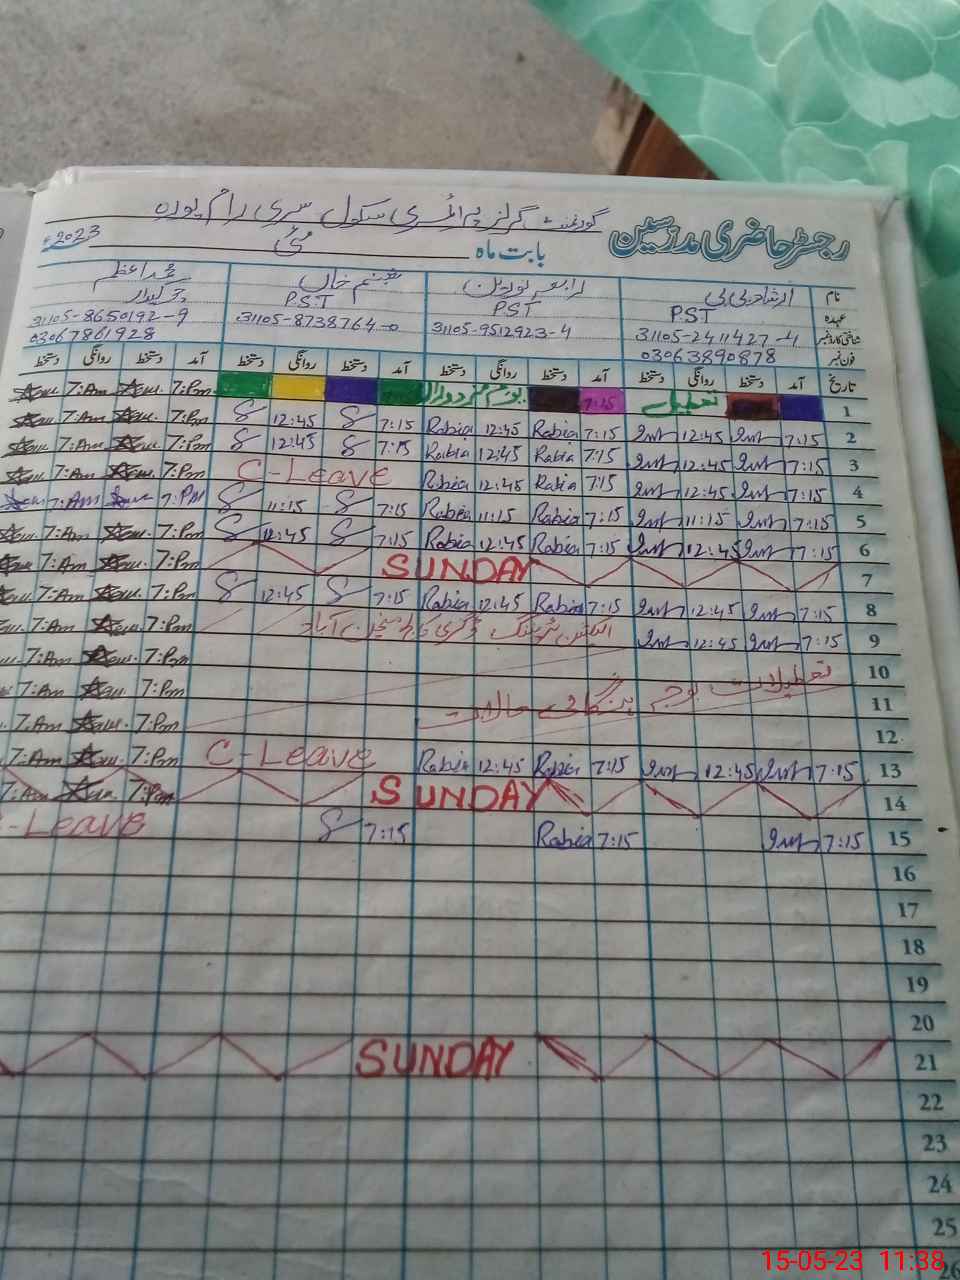 رجسٹر حاضری مدرسین گورنمنٹ گرلز پرائمری سکول سری رام پورہ
بابت ماہ مئی 2023ء
نام ارشاد بی بی رابعہ نورین شبنم خان محمد اعظم
عہدہ PST PST P.S.T چوکیدار
شناختی کارڈ نمبر 31105-2411427-4 31105-9512923-4 31105-8738764-0 31105-8650192-9
فون نمبر 03063890878 03067861928
تاریخ آمد دستخط روانگی دستخط آمد دستخط روانگی دستخط آمد دستخط روانگی دستخط آمد دستخط روانگی دستخط
1 تعطیل 7:15 یوم مزدوراں 7:Pm 7:Am
2 7:15 12:45 7:15 Rabia 12:45 Rabia 7:15 12:45 7:Pm 7:Am
3 7:15 12:45 7:15 Rabia 12:45 Rabia 7:15 12:45 7:Pm 7:Am
4 7:15 12:45 7:15 Rabia 12:45 Rabia C-Leave 7:Pm 7:Am
5 7:15 11:15 7:15 Rabia 11:15 Rabia 7:15 11:15 7:PM 7:Am
6 7:15 12:45 7:15 Rabia 12:45 Rabia 7:15 12:45 7:Pm 7:Am
7 SUNDAY 7:Pm 7:Am
8 7:15 12:45 7:15 Rabia 12:45 Rabia 7:15 12:45 7:Pm 7:Am
9 7:15 12:45 الیکشن ٹریننگ ڈگری کالج منچن آباد 7:Pm 7:Am
10 7:Pm 7:Am
11 تعطیلات بوجہ ہنگامی حالات 7:Pm 7:Am
12 7:Pm
13 7:15 12:45 7:15 Rabia 12:45 Rabia C-Leave 7:Pm 7:Am
14 SUNDAY 7:Pm 7:Am
15 7:15 7:15 Rabia 7:15 C-Leave
16
17
18
19
20
21 SUNDAY
22
23
24
25
26
15-05-23 11:38